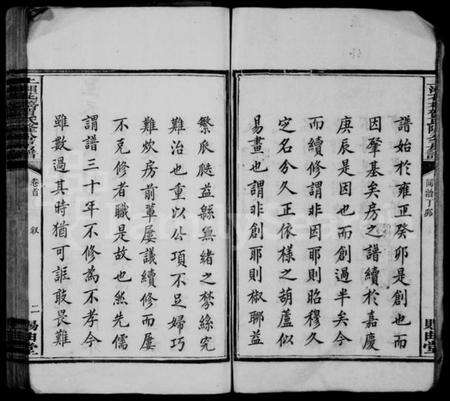 譜始於雍正癸卯是創也而
因肇基矣房之譜續於嘉慶
庚辰是因也而創過半矣今
而續修謂非因耶則昭穆久
定名分久正依樣之葫蘆似
易畫也謂非創耶則椒聊益
繁瓜瓞益縣無緒之棼絲究
難治也重以公項不足婦巧
難炊房前輩屢議續修而屢
不克修者職是故也然先儒
謂譜三十年不修為不孝今
雖數過其時猶可誑敢畏難
卷首
叙
二